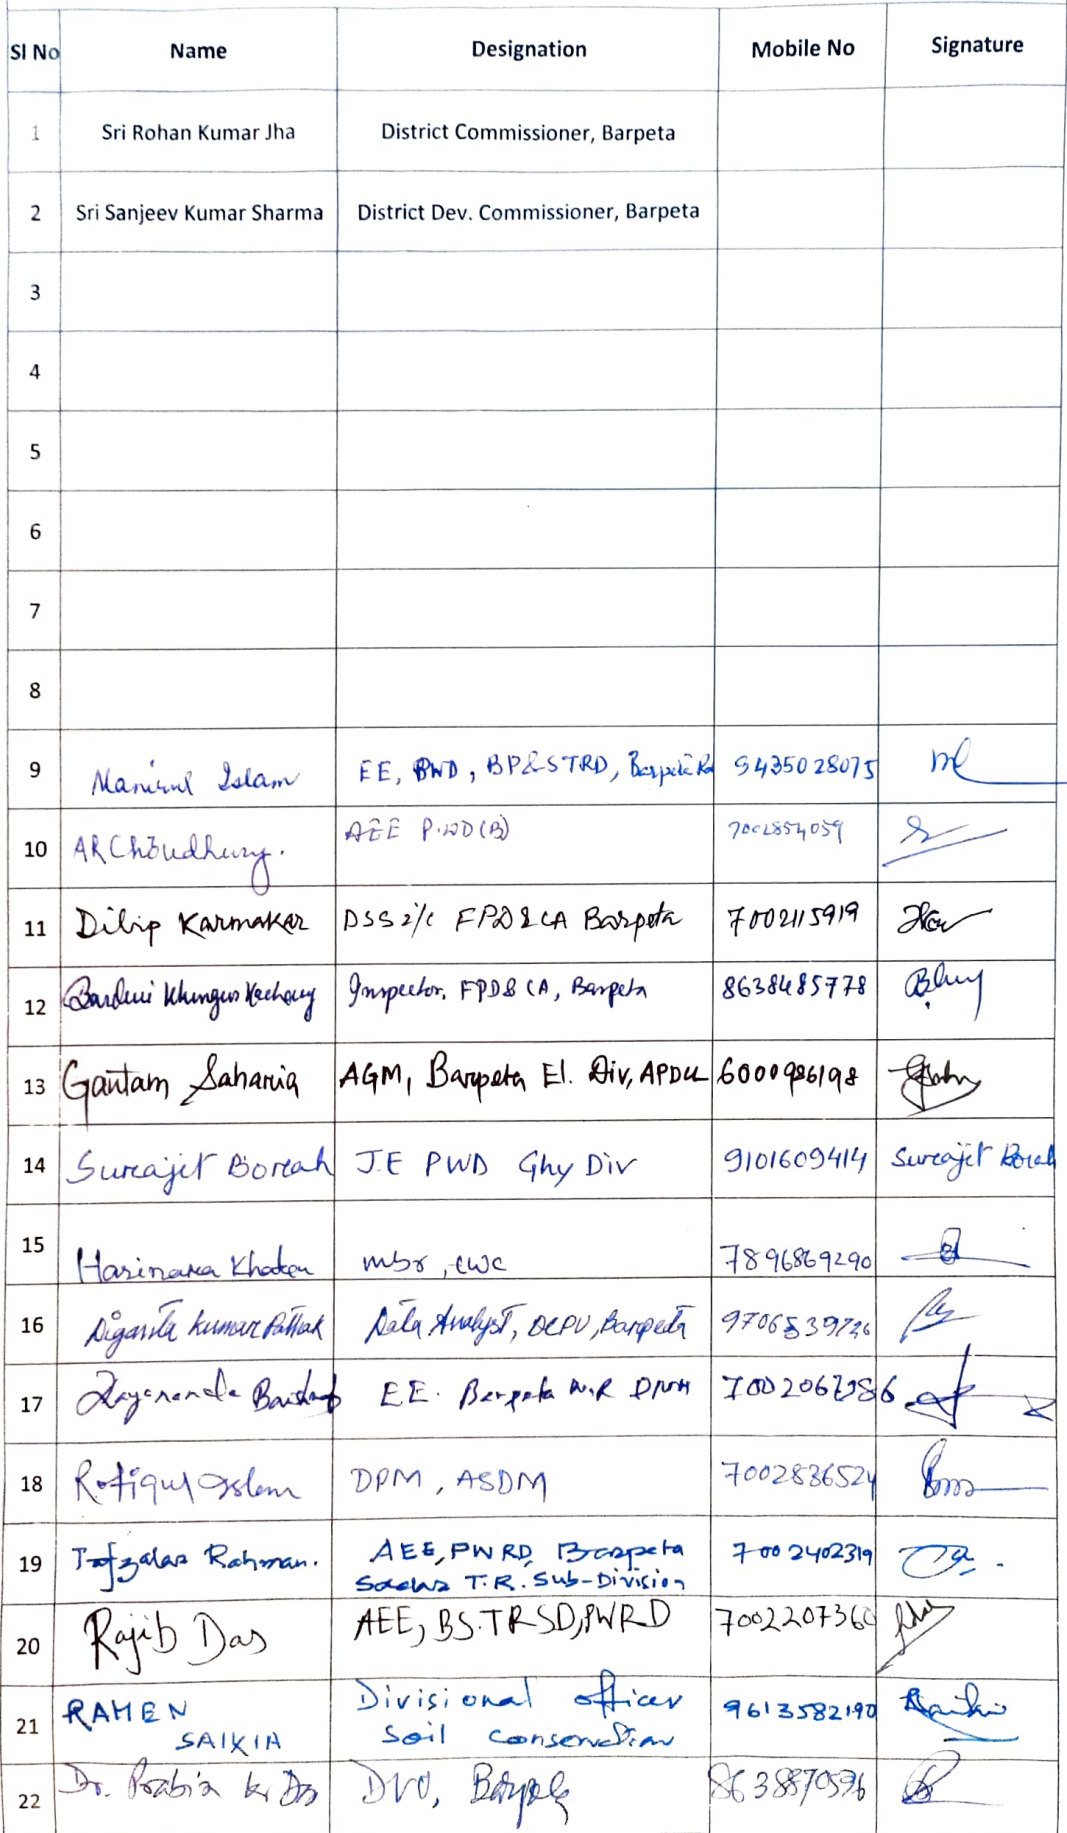 Sl No Name Designation Mobile No Signature
1 Sri Rohan Kumar Jha District Commissioner, Barpeta
2 Sri Sanjeev Kumar Sharma District Dev. Commissioner, Barpeta
3
4
5
6
7
8
9 Manirul Islam EE, PWD, BP&STRD, Barpeta Rd 9435028075
10 AR Choudhury. AEE P.WD(B) 7002854059
11 Dilip Karmakar DSS i/c FPD&CA Barpeta 7002115919
12 Inspector, FPD&CA, Barpeta 8638485778
13 Gautam Saharia AGM, Barpeta El. Div, APDCL 6000986198
14 Surajit Borah J.E PWD Ghy Div 9101609414 Surajit Borah
15 Khatun mbr, cwc 7896869290
16 Diganta Kumar Pathak Data Analyst, DCPU, Barpeta
17 EE. Barpeta W.R
18 Rofiqul Islam DPM, ASDM 7002836524
19 Rahman. AEE, PWRD, Barpeta 7002402319
T.R. Sub-Division
20 Rajib Das AEE, BS.TRSD, PWRD 7002207360
21 RAMEN Divisional officer 9613582190
SAIKIA Soil Conservation
22 Dr. Das DVO, Barpeta